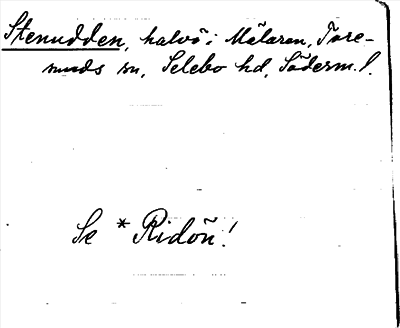 Stenudden, halvö i Mälaren, Tore-
sunds sn, Selebo hd, Söderm. l.
Se * Ridön!